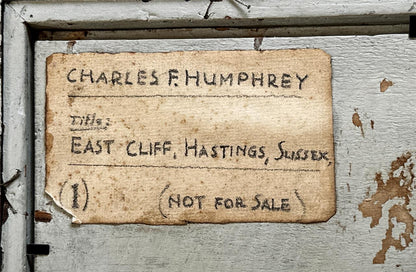 CHARLES F. HUMPHREY
Title:
EAST CLIFF, HASTINGS, SUSSEX,
(1) (NOT FOR SALE)